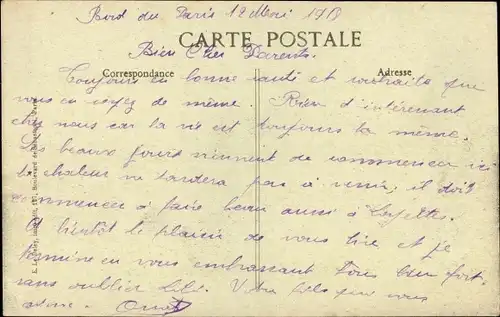 Bord du Paris 12 Mai
Bien Cher Parents.
CARTE POSTALE
Correspondance
Adresse
Toujours en bonne santé et souhaite que
vous en soyez de même. Rien d'intérenant
chez nous car la vie est toujours la même.
Les beaux jours viennent de commencer ici
la chaleur ne tardera pas à venir, il doit
commencer à faire beau aussi à
A bientôt le plaisir de vous lire et je
termine en vous embrassant tous bien fort
sans oublier Lili. Votre fils que vous
adore.